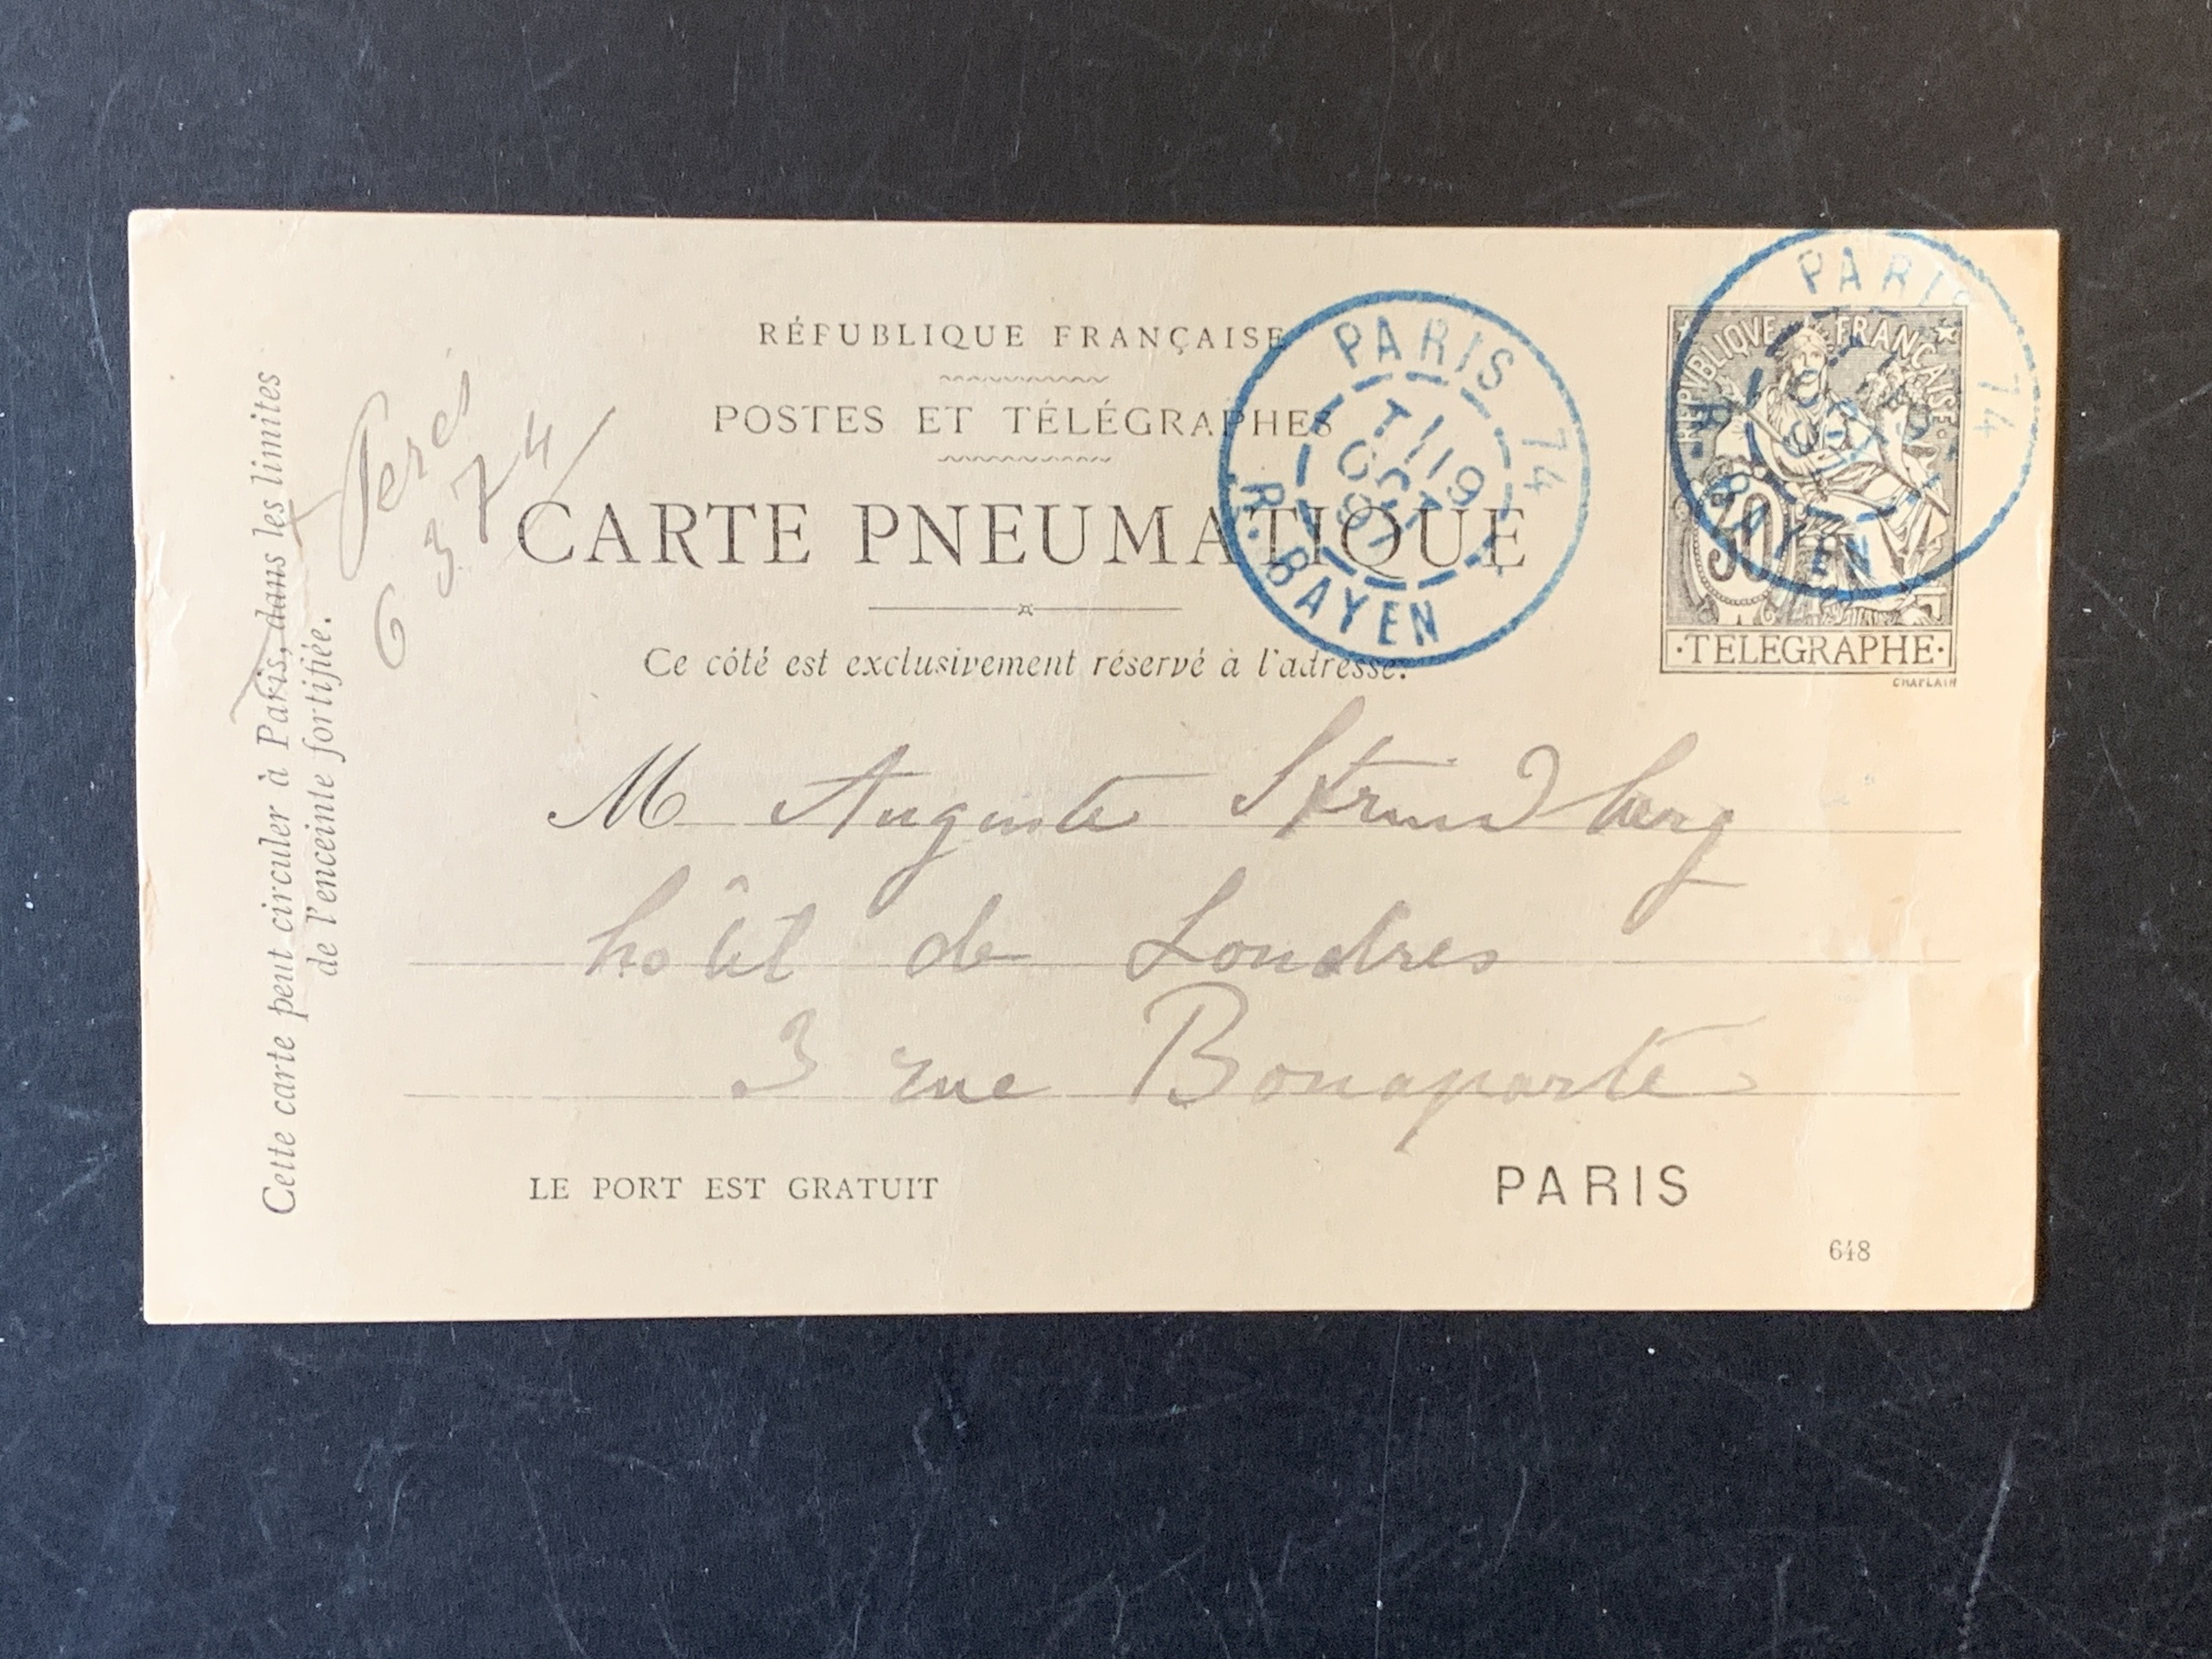 RÉPUBLIQUE FRANÇAISE
POSTES ET TÉLÉGRAPHES
CARTE PNEUMATIQUE
Ce côté est exclusivement réservé à l'adresse.
Cette carte peut circuler à Paris, dans les limites
de l'enceinte fortifiée.
6 3 7 4
PARIS 74
OCT
97
R. BAYEN
PARIS 74
R. BAYEN
REPVBLIQVE FRANÇAISE
30
TELEGRAPHE
CHAPLAIN
M Auguste Strindberg
hôtel de Londres
3 rue Bonaparte
LE PORT EST GRATUIT
PARIS
648